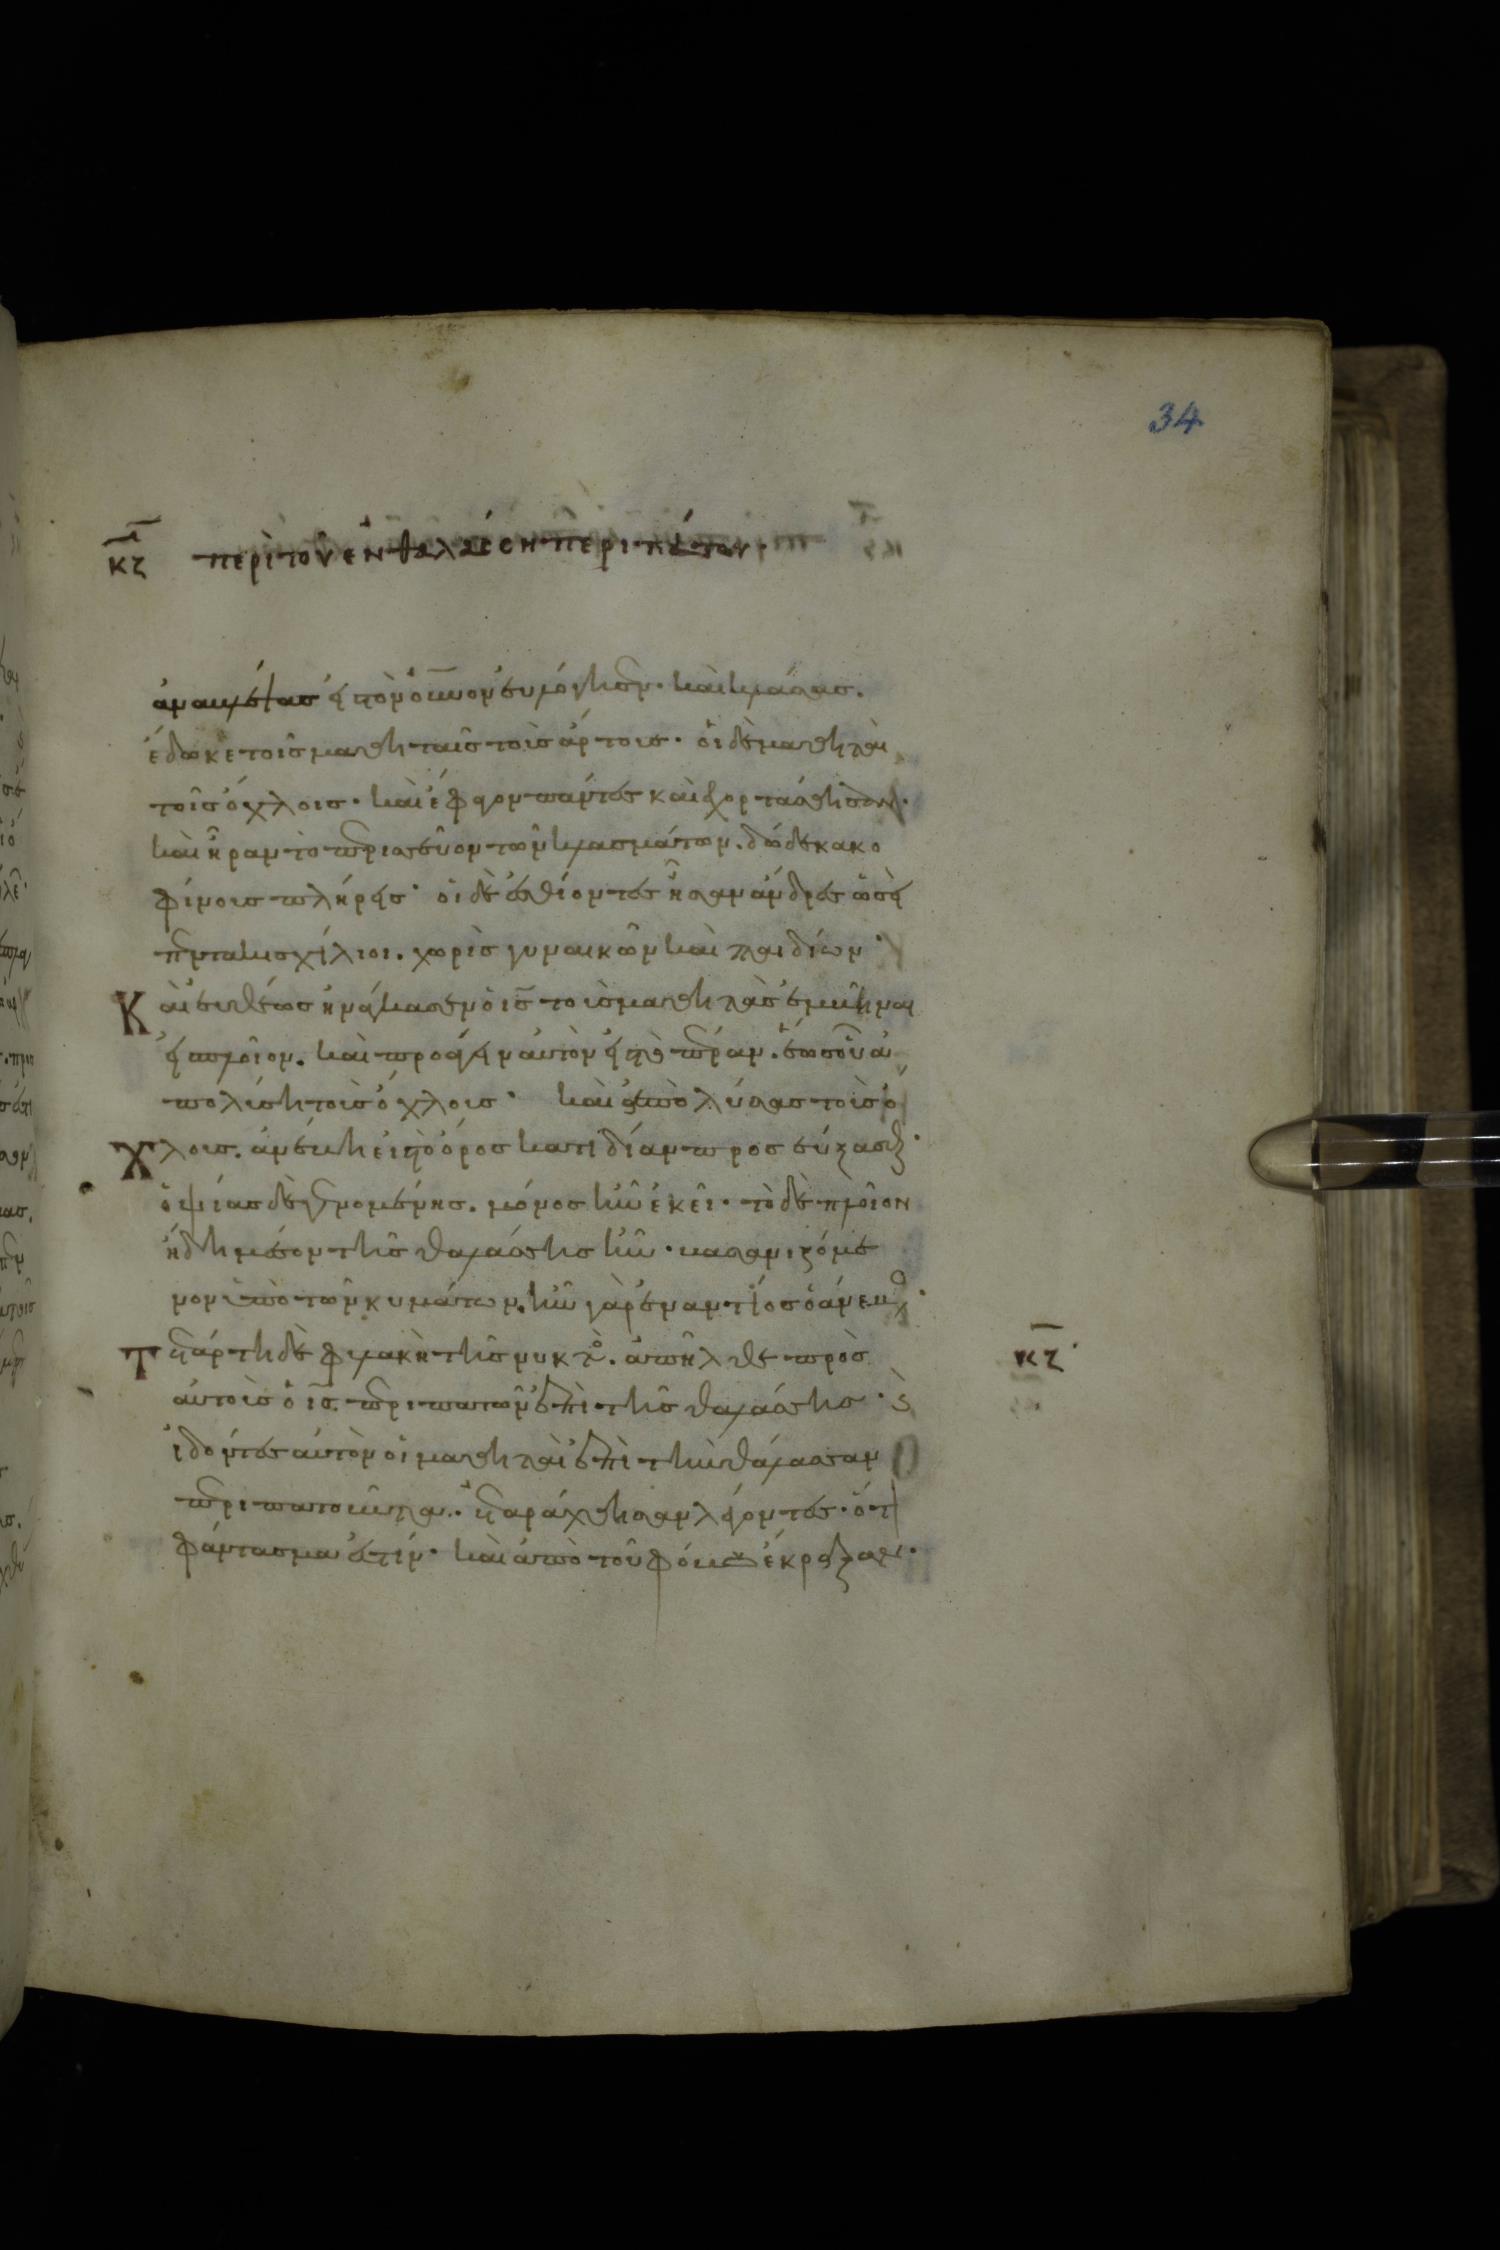 34
κζ περὶ τοῦ ἐν θαλάσσῃ περιπάτου·
ἀναβλέψας εἰς τὸν οὐνον εὐλόγησεν· καὶ κλάσας.
ἔδωκε τοῖς μαθηταῖς τοὺς ἄρτους· οἱ δὲ μαθηταὶ
τοῖς ὄχλοις· καὶ ἔφαγον πάντες καὶ ἐχορτάσθησαν·
καὶ ἦραν τὸ περισσεῦον τῶν κλασμάτων. δώδεκα κο
φίνους πλήρεις· οἱ δὲ ἐσθίοντες ἦσαν ἄνδρες ὡσεὶ
πεντακισχίλιοι. χωρὶς γυναικῶν καὶ παιδίων·
Καὶ εὐθέως ἠνάγκασεν ὁ ις τοὺς μαθητὰς ἐμβῆναι
εἰς πλοῖον. καὶ προάγειν αὐτὸν εἰς τὸ πέραν. ἕως οὗ ἀ
πολύσῃ τοὺς ὄχλους· καὶ ἀπολύσας τοὺς ὄ
χλους. ἀνέβη εἰς τὸ ὄρος κατιδίαν προσεύξασθ·
ὀψίας δὲ γενομένης. μόνος ἦν ἐκεῖ· τὸ δὲ πλοῖον
ἤδη μέσον τῆς θαλάσσης ἦν· βασανιζόμε
νον ὑπὸ τῶν κυμάτων. ἦν γὰρ ἐναντίος ὁ ἄνεμο·
Τετάρτη δὲ φυλακῆ τῆς νυκτὸ. ἀπῆλθε πρὸς κζ·
αὐτοὺς ὁ ις. περιπατῶν ἐπὶ τῆς θαλάσσης· καὶ
ἰδόντες αὐτὸν οἱ μαθηταὶ ἐπὶ τὴν θάλασσαν
περιπατοῦντα. ἐταράχθησαν λέγοντες· ὅτι
φάντασμα ἐστίν· καὶ ἀπὸ τοῦ φόβου ἔκραξαν·